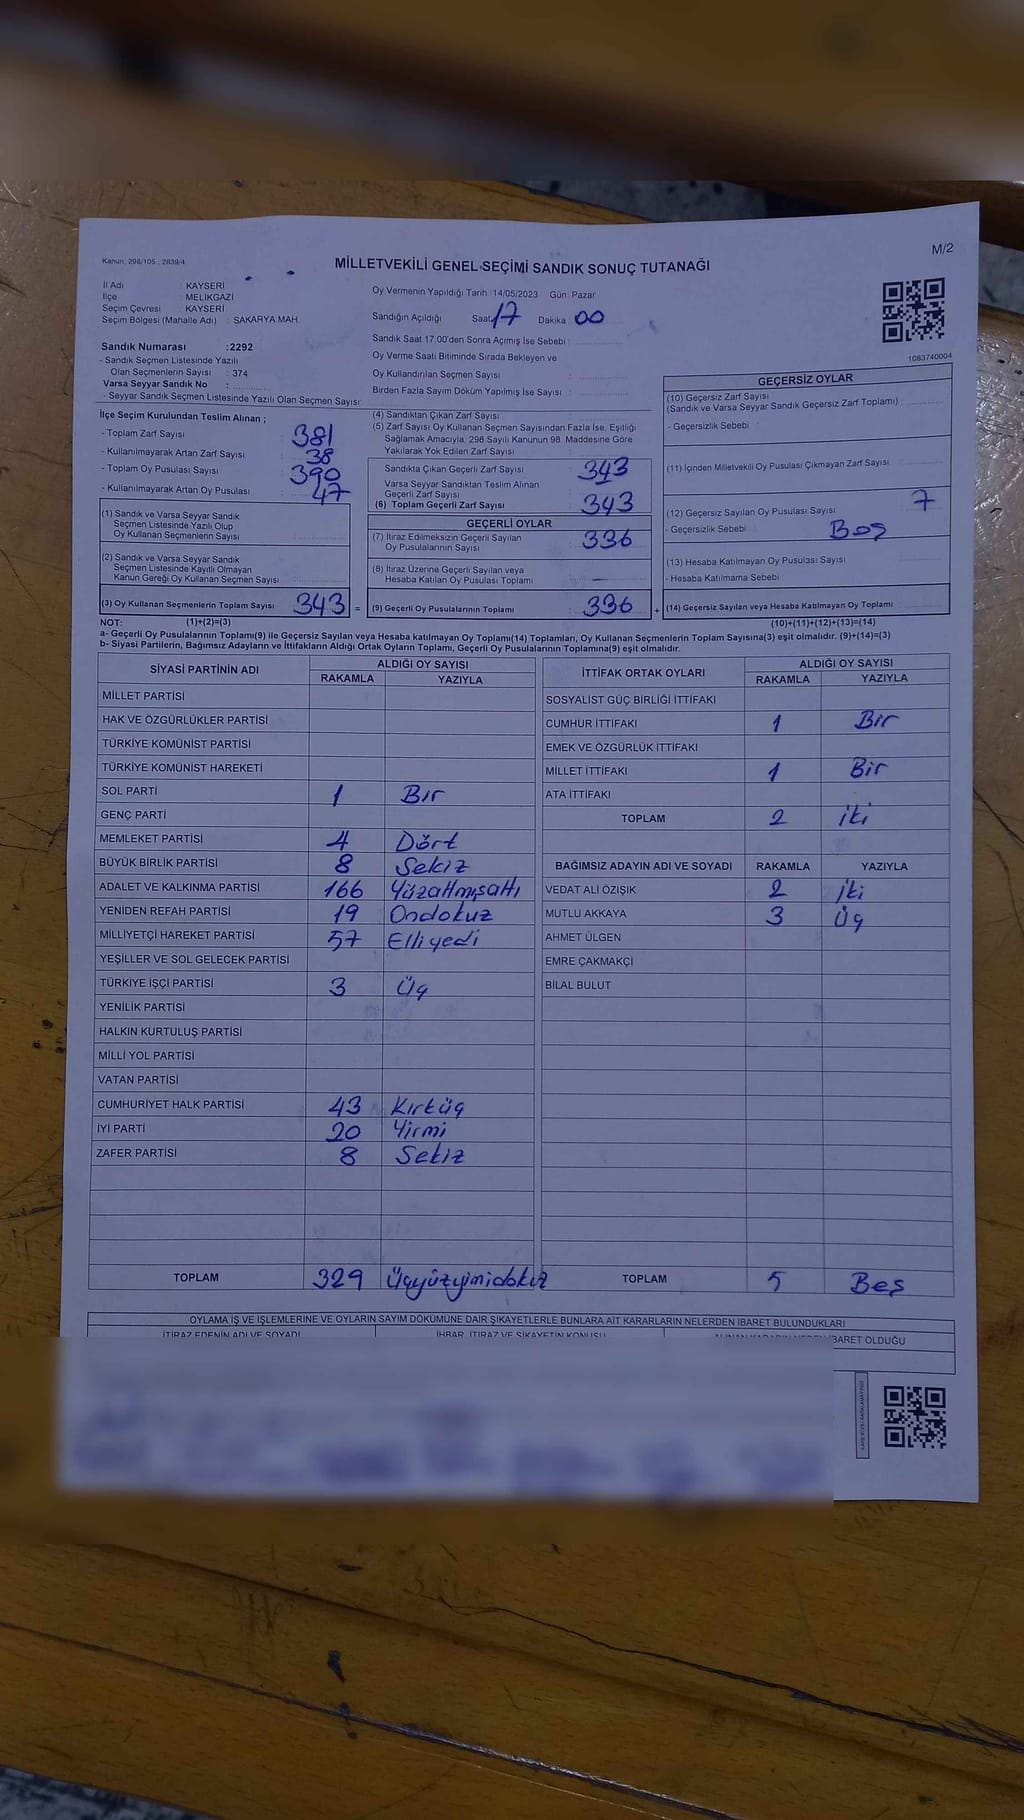 M/2
Kanun: 298/105 , 2839/4
MİLLETVEKİLİ GENEL SEÇİMİ SANDIK SONUÇ TUTANAĞI
İl Adı : KAYSERİ
İlçe MELİKGAZİ
Seçim Çevresi : KAYSERİ
Seçim Bölgesi (Mahalle Adı) : SAKARYA MAH.
Sandık Numarası :2292
- Sandık Seçmen Listesinde Yazılı
Olan Seçmenlerin Sayısı : 374
Varsa Seyyar Sandık No :
- Seyyar Sandık Seçmen Listesinde Yazılı Olan Seçmen Sayısı:
Oy Vermenin Yapıldığı Tarih :14/05/2023 Gün: Pazar
Sandığın Açıldığı Saat 17 Dakika : 00
Sandık Saat 17.00'den Sonra Açımış İse Sebebi :
Oy Verme Saati Bitiminde Sırada Bekleyen ve
Oy Kullandırılan Seçmen Sayısı :
Birden Fazla Sayım Döküm Yapılmış İse Sayısı :
1083740004
İlçe Seçim Kurulundan Teslim Alınan ;
- Toplam Zarf Sayısı 381
- Kullanılmayarak Artan Zarf Sayısı 38
- Toplam Oy Pusulası Sayısı 390
- Kullanılmayarak Artan Oy Pusulası 47
(1) Sandık ve Varsa Seyyar Sandık
Seçmen Listesinde Yazılı Olup
Oy Kullanan Seçmenlerin Sayısı :
(2) Sandık ve Varsa Seyyar Sandık
Seçmen Listesinde Kayıtlı Olmayan
Kanun Gereği Oy Kullanan Seçmen Sayısı :
(3) Oy Kullanan Seçmenlerin Toplam Sayısı 343 =
(4) Sandıktan Çıkan Zarf Sayısı :
(5) Zarf Sayısı Oy Kullanan Seçmen Sayısından Fazla İse, Eşitliği
Sağlamak Amacıyla, 298 Sayılı Kanunun 98. Maddesine Göre
Yakılarak Yok Edilen Zarf Sayısı :
Sandıkta Çıkan Geçerli Zarf Sayısı : 343
Varsa Seyyar Sandıktan Teslim Alınan
Geçerli Zarf Sayısı :
(6) Toplam Geçerli Zarf Sayısı : 343
GEÇERLİ OYLAR
(7) İtiraz Edilmeksizin Geçerli Sayılan
Oy Pusulalarının Sayısı : 336
(8) İtiraz Üzerine Geçerli Sayılan veya
Hesaba Katılan Oy Pusulası Toplamı : —
(9) Geçerli Oy Pusulalarının Toplamı : 336 +
GEÇERSİZ OYLAR
(10) Geçersiz Zarf Sayısı
(Sandık ve Varsa Seyyar Sandık Geçersiz Zarf Toplamı) :
- Geçersizlik Sebebi :
(11) İçinden Milletvekili Oy Pusulası Çıkmayan Zarf Sayısı :
(12) Geçersiz Sayılan Oy Pusulası Sayısı : 7
- Geçersizlik Sebebi : Boş
(13) Hesaba Katılmayan Oy Pusulası Sayısı :
- Hesaba Katılmama Sebebi :
(14) Geçersiz Sayılan veya Hesaba Katılmayan Oy Toplamı :
NOT: (1)+(2)=(3) (10)+(11)+(12)+(13)=(14)
a- Geçerli Oy Pusulalarının Toplamı(9) ile Geçersiz Sayılan veya Hesaba katılmayan Oy Toplamı(14) Toplamları, Oy Kullanan Seçmenlerin Toplam Sayısına(3) eşit olmalıdır. (9)+(14)=(3)
b- Siyasi Partilerin, Bağımsız Adayların ve İttifakların Aldığı Ortak Oyların Toplamı, Geçerli Oy Pusulalarının Toplamına(9) eşit olmalıdır.
SİYASİ PARTİNİN ADI ALDIĞI OY SAYISI
RAKAMLA YAZIYLA
MİLLET PARTİSİ
HAK VE ÖZGÜRLÜKLER PARTİSİ
TÜRKİYE KOMÜNİST PARTİSİ
TÜRKİYE KOMÜNİST HAREKETİ
SOL PARTİ 1 Bir
GENÇ PARTİ
MEMLEKET PARTİSİ 4 Dört
BÜYÜK BİRLİK PARTİSİ 8 Sekiz
ADALET VE KALKINMA PARTİSİ 166 Yüzaltmışaltı
YENİDEN REFAH PARTİSİ 19 Ondokuz
MİLLİYETÇİ HAREKET PARTİSİ 57 Elliyedi
YEŞİLLER VE SOL GELECEK PARTİSİ
TÜRKİYE İŞÇİ PARTİSİ 3 Üç
YENİLİK PARTİSİ
HALKIN KURTULUŞ PARTİSİ
MİLLİ YOL PARTİSİ
VATAN PARTİSİ
CUMHURİYET HALK PARTİSİ 43 Kırküç
İYİ PARTİ 20 Yirmi
ZAFER PARTİSİ 8 Sekiz
TOPLAM 329 Üçyüzyimidokuz
İTTİFAK ORTAK OYLARI ALDIĞI OY SAYISI
RAKAMLA YAZIYLA
SOSYALİST GÜÇ BİRLİĞİ İTTİFAKI
CUMHUR İTTİFAKI 1 Bir
EMEK VE ÖZGÜRLÜK İTTİFAKI
MİLLET İTTİFAKI 1 Bir
ATA İTTİFAKI
TOPLAM 2 iki
BAĞIMSIZ ADAYIN ADI VE SOYADI RAKAMLA YAZIYLA
VEDAT ALİ ÖZIŞIK 2 iki
MUTLU AKKAYA 3 Üç
AHMET ÜLGEN
EMRE ÇAKMAKÇİ
BİLAL BULUT
TOPLAM 5 Beş
OYLAMA İŞ VE İŞLEMLERİNE VE OYLARIN SAYIM DÖKÜMÜNE DAİR ŞİKAYETLERLE BUNLARA AİT KARARLARIN NELERDEN İBARET BULUNDUKLARI
İTİRAZ EDENİN ADI VE SOYADI İHBAR, İTİRAZ VE ŞİKAYETİN KONUSU ALINAN KARARIN NEDEN İBARET OLDUĞU